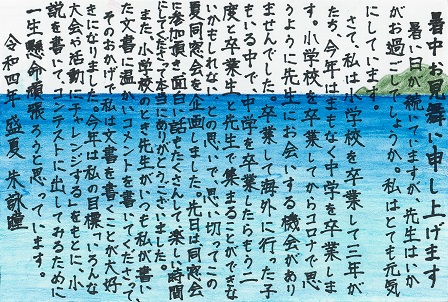 暑中お見舞い申し上げます
暑い日が続いていますが、先生はいか
がお過ごしでしょうか。私はとても元気
にしています。
さて、私は小学校を卒業して三年が
たち、今年はまもなく中学を卒業しま
す。小学校を卒業してからコロナで思
うように先生にお会いする機会があり
ませんでした。卒業して海外に行った子
もいる中で、中学を卒業したらもう二
度と卒業生と先生で集まることができな
いかもしれない、との思いで、思い切ってこの
夏、同窓会を企画しました。先日は同窓会
に参加頂き、面白い話もたくさんして楽しい時間
にしてくださって本当にありがとうございました。
また、小学校のとき先生がいつも私が書い
た文書に温かいコメントを書いてくださって、
そのおかげで私は文書を書くことが大好
きになりました。今年は私の目標「いろんな
大会や活動にチャレンジする」をもとに、小
説を書いて、コンテストに出してみるために
一生懸命頑張ろうと思っています。
令和四年 盛夏 朱詠瞳